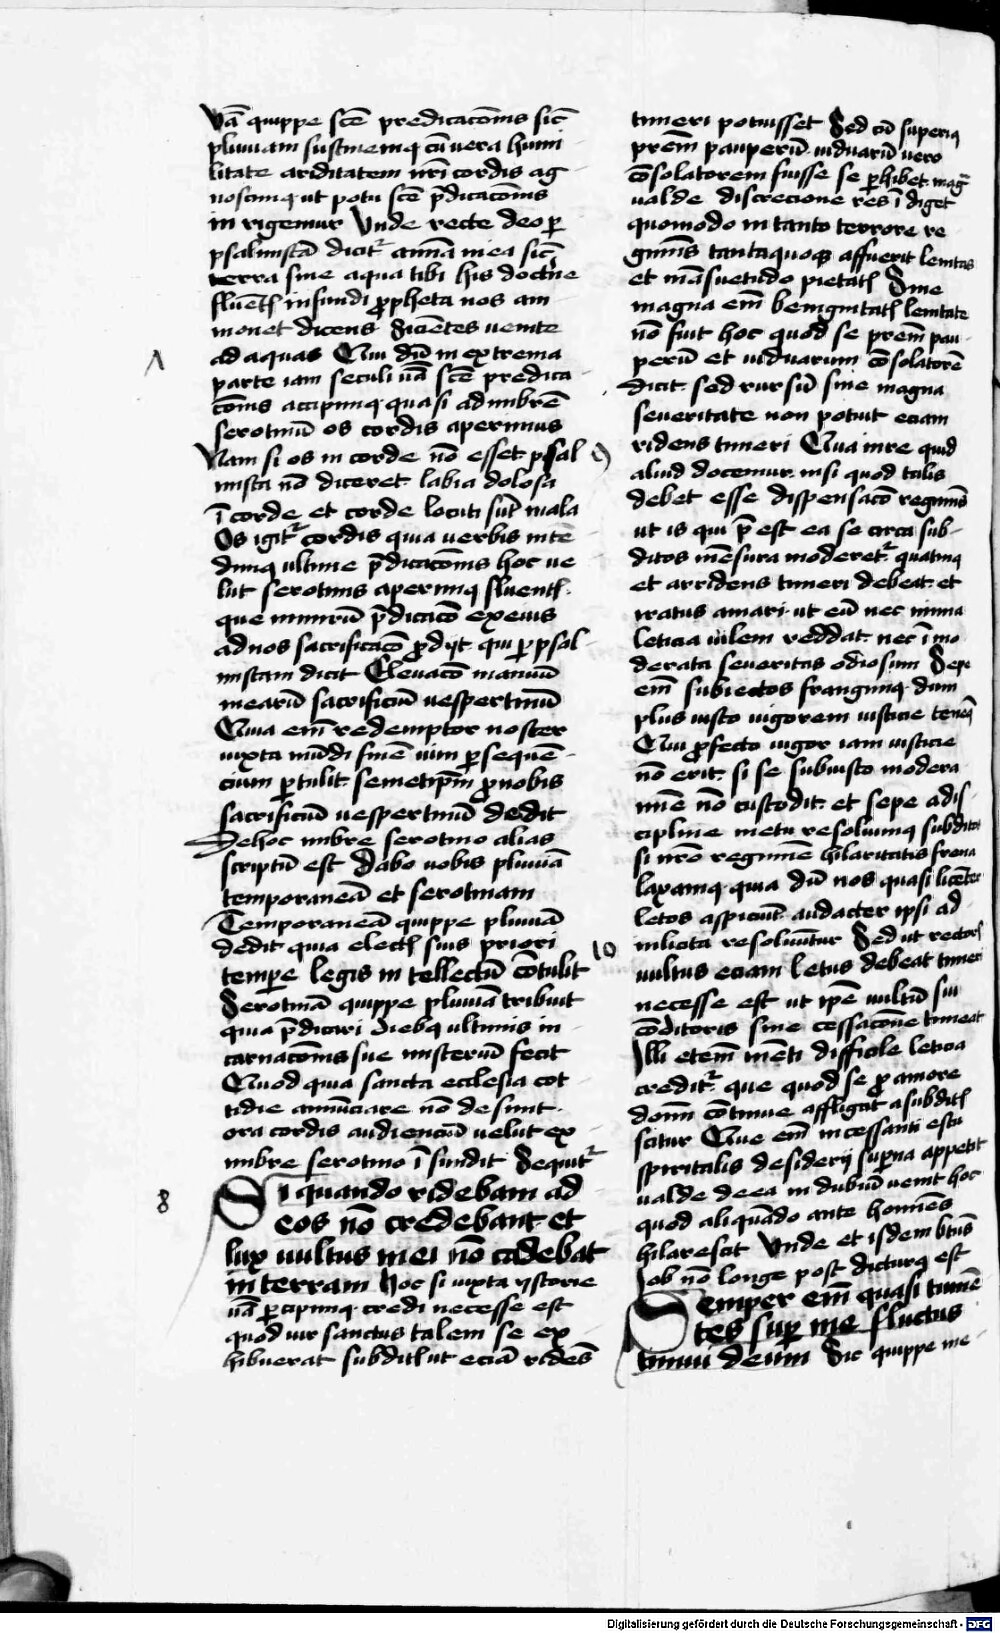 Vā quippe scē predicacōnis sic̄
pluuiam sustinemꝯ cū vera humi
litate ariditatem nr̄i cordis ag
noscimꝯ ut potu scē p̄dicacōnis
in rigemur Vnde recte deo ꝑ
psalmistā dicit᷑ aīma mea sic̄
terra sine aqua tibi his doctr̄ne
fluēt̄ infundi ꝓpheta nos am
monet dicens Sicientes uenite
ad aquas Qui dū in extrema
parte iam seculi uā scē predica
cōnis accipimꝯ quasi ad imbrē
serotinū os cordis aperimus
Nam si os in corde nō esset psal
mista nō diceret labia dolosa
ī corde et corde locuti sūt mala
Os igit᷑ cordis quia uerbis intē
dimꝯ ultime p̄dicacōnis hoc ue
lut serotinis aperimꝯ fluent̄
que nimirū p̄dicacō ex eius
ad nos sacrificacō ꝓdijt qui ꝑ psal
mistam dicit Eleuacō manuū
mearū sacrificiū uespertinū
Quia em̄ redemptor noster
iuxta mūdi finē uim ꝑsequē
cium ꝑtulit semetip̄m ꝓ nobis
sacrificiū uespertinū dedit
De hoc imbre serotino alias
scriptū est Dabo uobis pluuiā
temporaneā et serotinam
Temporaneā quippe pluuiā
dedit quia elect̄ suis priori
tempe legis in tellectū cōtulit
Serotinā quippe pluuiā tribuit
quia p̄dicari diebꝯ ultimis in
carnacōnis sue misteriū fecit
Quod quia sancta ecclesia cot
tidie annūciare nō desinit
ora cordis audienciū uelut ex
imbre serotino īfundit Sequit᷑
8
Si quando ridebam ad
eos nō credebant et
lux uultus mei nō cadebat
in terram Hoc si iuxta ystorie
uā ꝑcipimꝯ credi necesse est
quod uir sanctus talem se ex
hibuerat subdit̄ ut eciā ridēs
timeri potuisset Sed cū superiꝯ
prēm pauperū uiduarū uero
cōsolatorem fuisse se ꝑhibet mag᷑
ualde discrecione res īdiget
quomodo in tanto terrore re
giminis tanta quoqꝫ affuerit lenitas
et māsuetudo pietat̄ Sine
magna em̄ benignitat̄ lenitate
nō fuit hoc quod se prēm pau
perū et uiduarum cōsolatorē
dicit sed rursū sine magna
seueritate non potuit eciam
ridens timeri Qua in re quid
9
aliud docemur nisi quod talis
debet esse dispensacō regiminis
ut is qui p̄ est ea se circa sub
ditos mēsura moderet᷑ quatinꝯ
et arridens timeri debeat et
iratus amari ut eū nec nimia
leticia uilem reddat nec īmo
derata seueritas odiosum Sepe
em̄ subiectos frangimꝯ dum
plus iusto uigorem iusticie tenem̄
Qui ꝓfecto uigor iam iusticie
nō erit si se sub iusto modera
mīe nō custodit et sepe a dis
cipline metu resoluimꝯ subditos
si nr̄o regimīe hilaritatis frena
laxamꝯ quia dū nos quasi licēter
letos aspiciūt audacter ipsi ad
illicita resoluūtur Sed ut rectorꝭ
10
uultus eciam letus debeat timeri
necesse est ut ip̄e uultū sui
cōditoris sine cessacōne timeat
Illi etem̄ mēti difficile leticia
credit᷑ que quod se ꝓ amore
domī cōtinue affligat a subdit̄
scitur Que em̄ incessanti estu
spiritalis desiderij suꝑna appetit
ualde de ea in dubiū uenit hoc
quod aliquādo ante homīes
hilarescit Vnde et isdem btūs
Iob nō longe post dicturꝯ est
Semper em̄ quasi tumē
tes suꝑ me fluctus
timui deum Sic quippe me
Digitalisierung gefördert durch die Deutsche Forschungsgemeinschaft - DFG